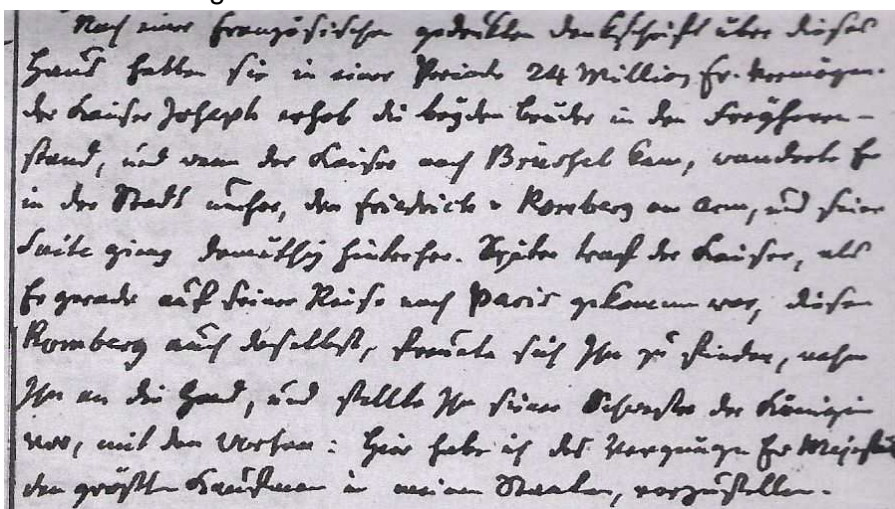 Nach einer französischen gedrukten Denkschrift über dieses
Haus hatten sie in einer Periode 24 Million fr. Vermögen.
der Kaiser Joseph erhob die beyden brüder in den Freyherrn-
stand, und wenn der Kaiser nach Brüssel kam, wanderte Er
in der Stadt umher, den Friedrich v Romberg am Arm, und seine
Suite ging demüthig hinterher. Später traf der Kaiser, als
Er gerade auf seiner Reise nach Paris gekommen war, diesen
Romberg auch daselbst, freute sich Ihn zu finden, nahm
Ihn an die Hand, und stellte Ihn seiner Schwester der Königin
vor, mit den Worten: hier habe ich das Vergnügen Er Majestät
den größten Kaufman in meinen Staaten, vorzustellen.